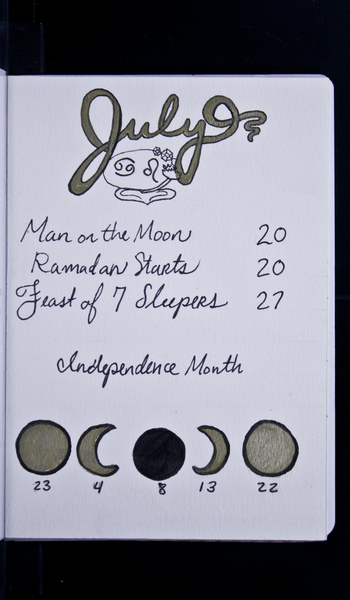 July
♋ ♌
Man on the Moon 20
Ramadan Starts 20
Feast of 7 Sleepers 27
Independence Month
23 4 8 13 22